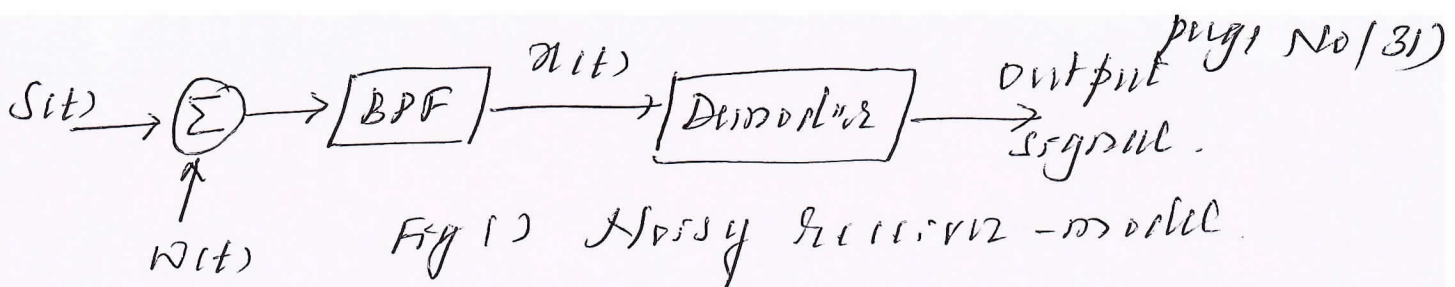 page No(31)
S(t) Σ BPF x(t) Demodler output
signal.
w(t)
Fig 1) Noisy receiver-model.